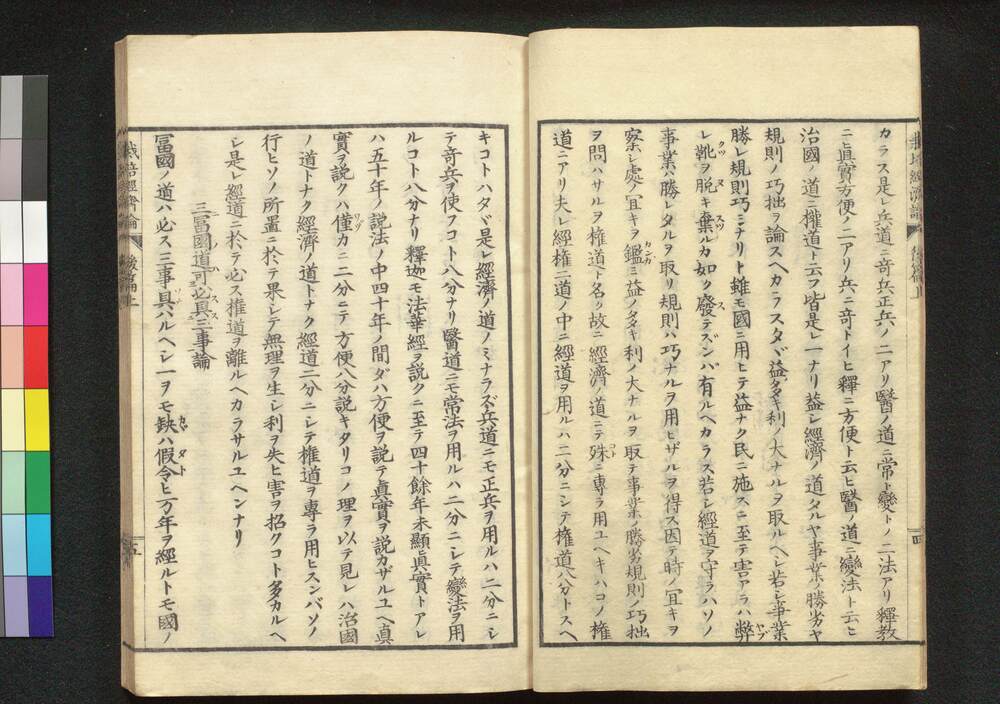 カラス是レ兵道ニ奇兵正兵ノ二アリ醫ノ道ニ常ト變トノ二法アリ釋教
ニ眞實方便ノ二アリ兵ニ奇トイヒ釋ニ方便ト云ヒ醫ノ道ニ變法ト云ヒ
治國ノ道ニ權道ト云フ皆是レ一ナリ蓋シ經濟ノ道タルヤ事業ノ勝劣ヤ
規則ノ巧拙ヲ論スヘカラスタヾ益多キ利ノ大ナルヲ取ルヘシ若シ事業
勝レ規則巧ミナリト雖モ國ニ用ヒテ益ナク民ニ施スニ至テ害アラハ弊
レ靴ヲ脱キ棄ルカ如ク廢テズンバ有ルヘカラス若シ經道ヲ守ラハソノ
事業ハ勝レタルヲ取リ規則ハ巧ナルヲ用ヒザルヲ得ス因テ時ノ冝キヲ
察シ處ノ冝キヲ鑑ミ益ノ多キ利ノ大ナルヲ取テ事業ノ勝劣規則ノ巧拙
ヲ問ハサルヲ權道ト名ク故ニ經濟ノ道ニテ殊ニ專ラ用ユヘキハコノ權
道ニアリ夫レ經權二道ノ中ニ經道ヲ用ルハ二分ニシテ權道八分トスヘ
四
キコトハタヾ是レ經濟ノ道ノミナラズ兵道ニモ正兵ヲ用ルハ二分ニシ
テ奇兵ヲ使フコト八分ナリ醫道ニモ常法ヲ用ルハ二分ニシテ變法ヲ用
ルコト八分ナリ釋迦モ法華經ヲ説クニ至テ四十餘年未顯眞實トアレ
ハ五十年ノ説法ノ中四十年ノ間ダハ方便ヲ説テ眞實ヲ説カザルユヘ眞
實ヲ説クハ僅カニ二分ニテ方便八分説キタリコノ理ヲ以テ見レハ治國
ノ道トナク經濟ノ道トナク經道二分ニシテ權道ヲ專ラ用ヒスンバソノ
行ヒソノ所置ニ於テ果シテ無理ヲ生シ利ヲ失ヒ害ヲ招クコト多カルヘ
シ是レ經道ニ於テ必ス權道ヲ離ルヘカラサルユヘンナリ
三冨國道可必具三事論
冨國ノ道ハ必ス三事具ハルヘシ一ヲモ缺ハ假令ヒ万年ヲ經ルトモ國ノ
栽培經濟論 後篇上 五